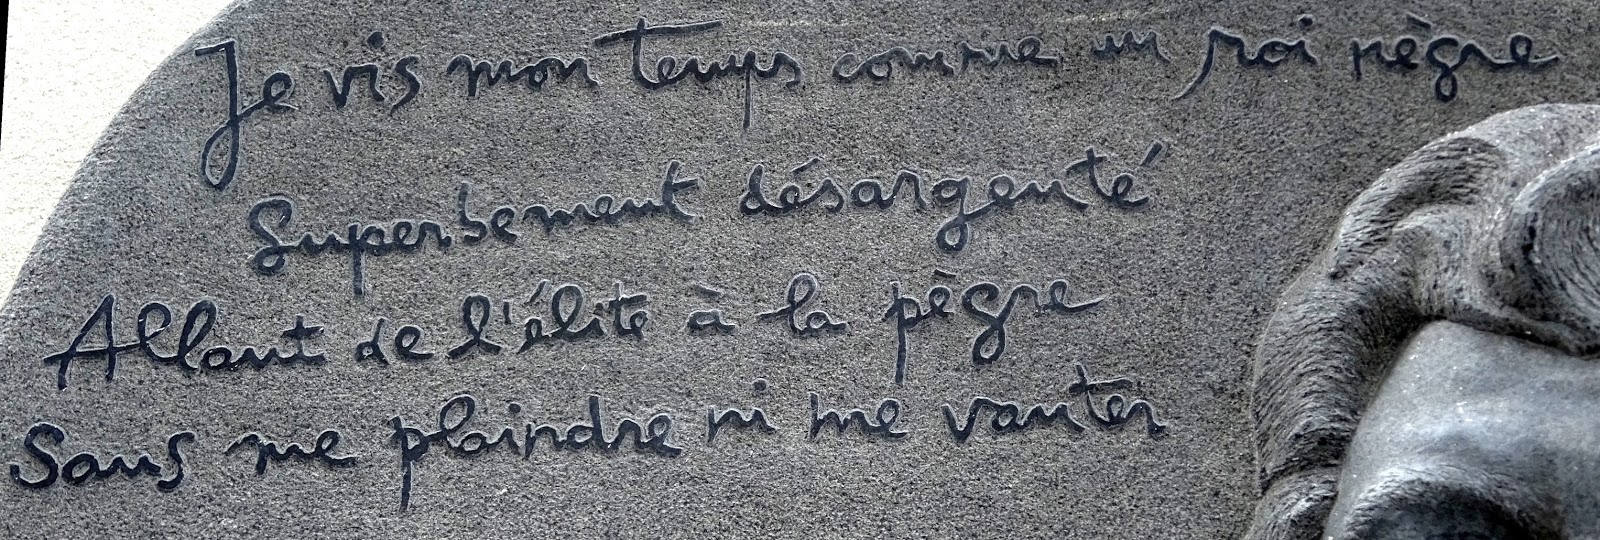 Je vis mon temps comme un roi nègre
Superbement désargenté
Allant de l'élite à la pègre
Sans me plaindre ni me vanter